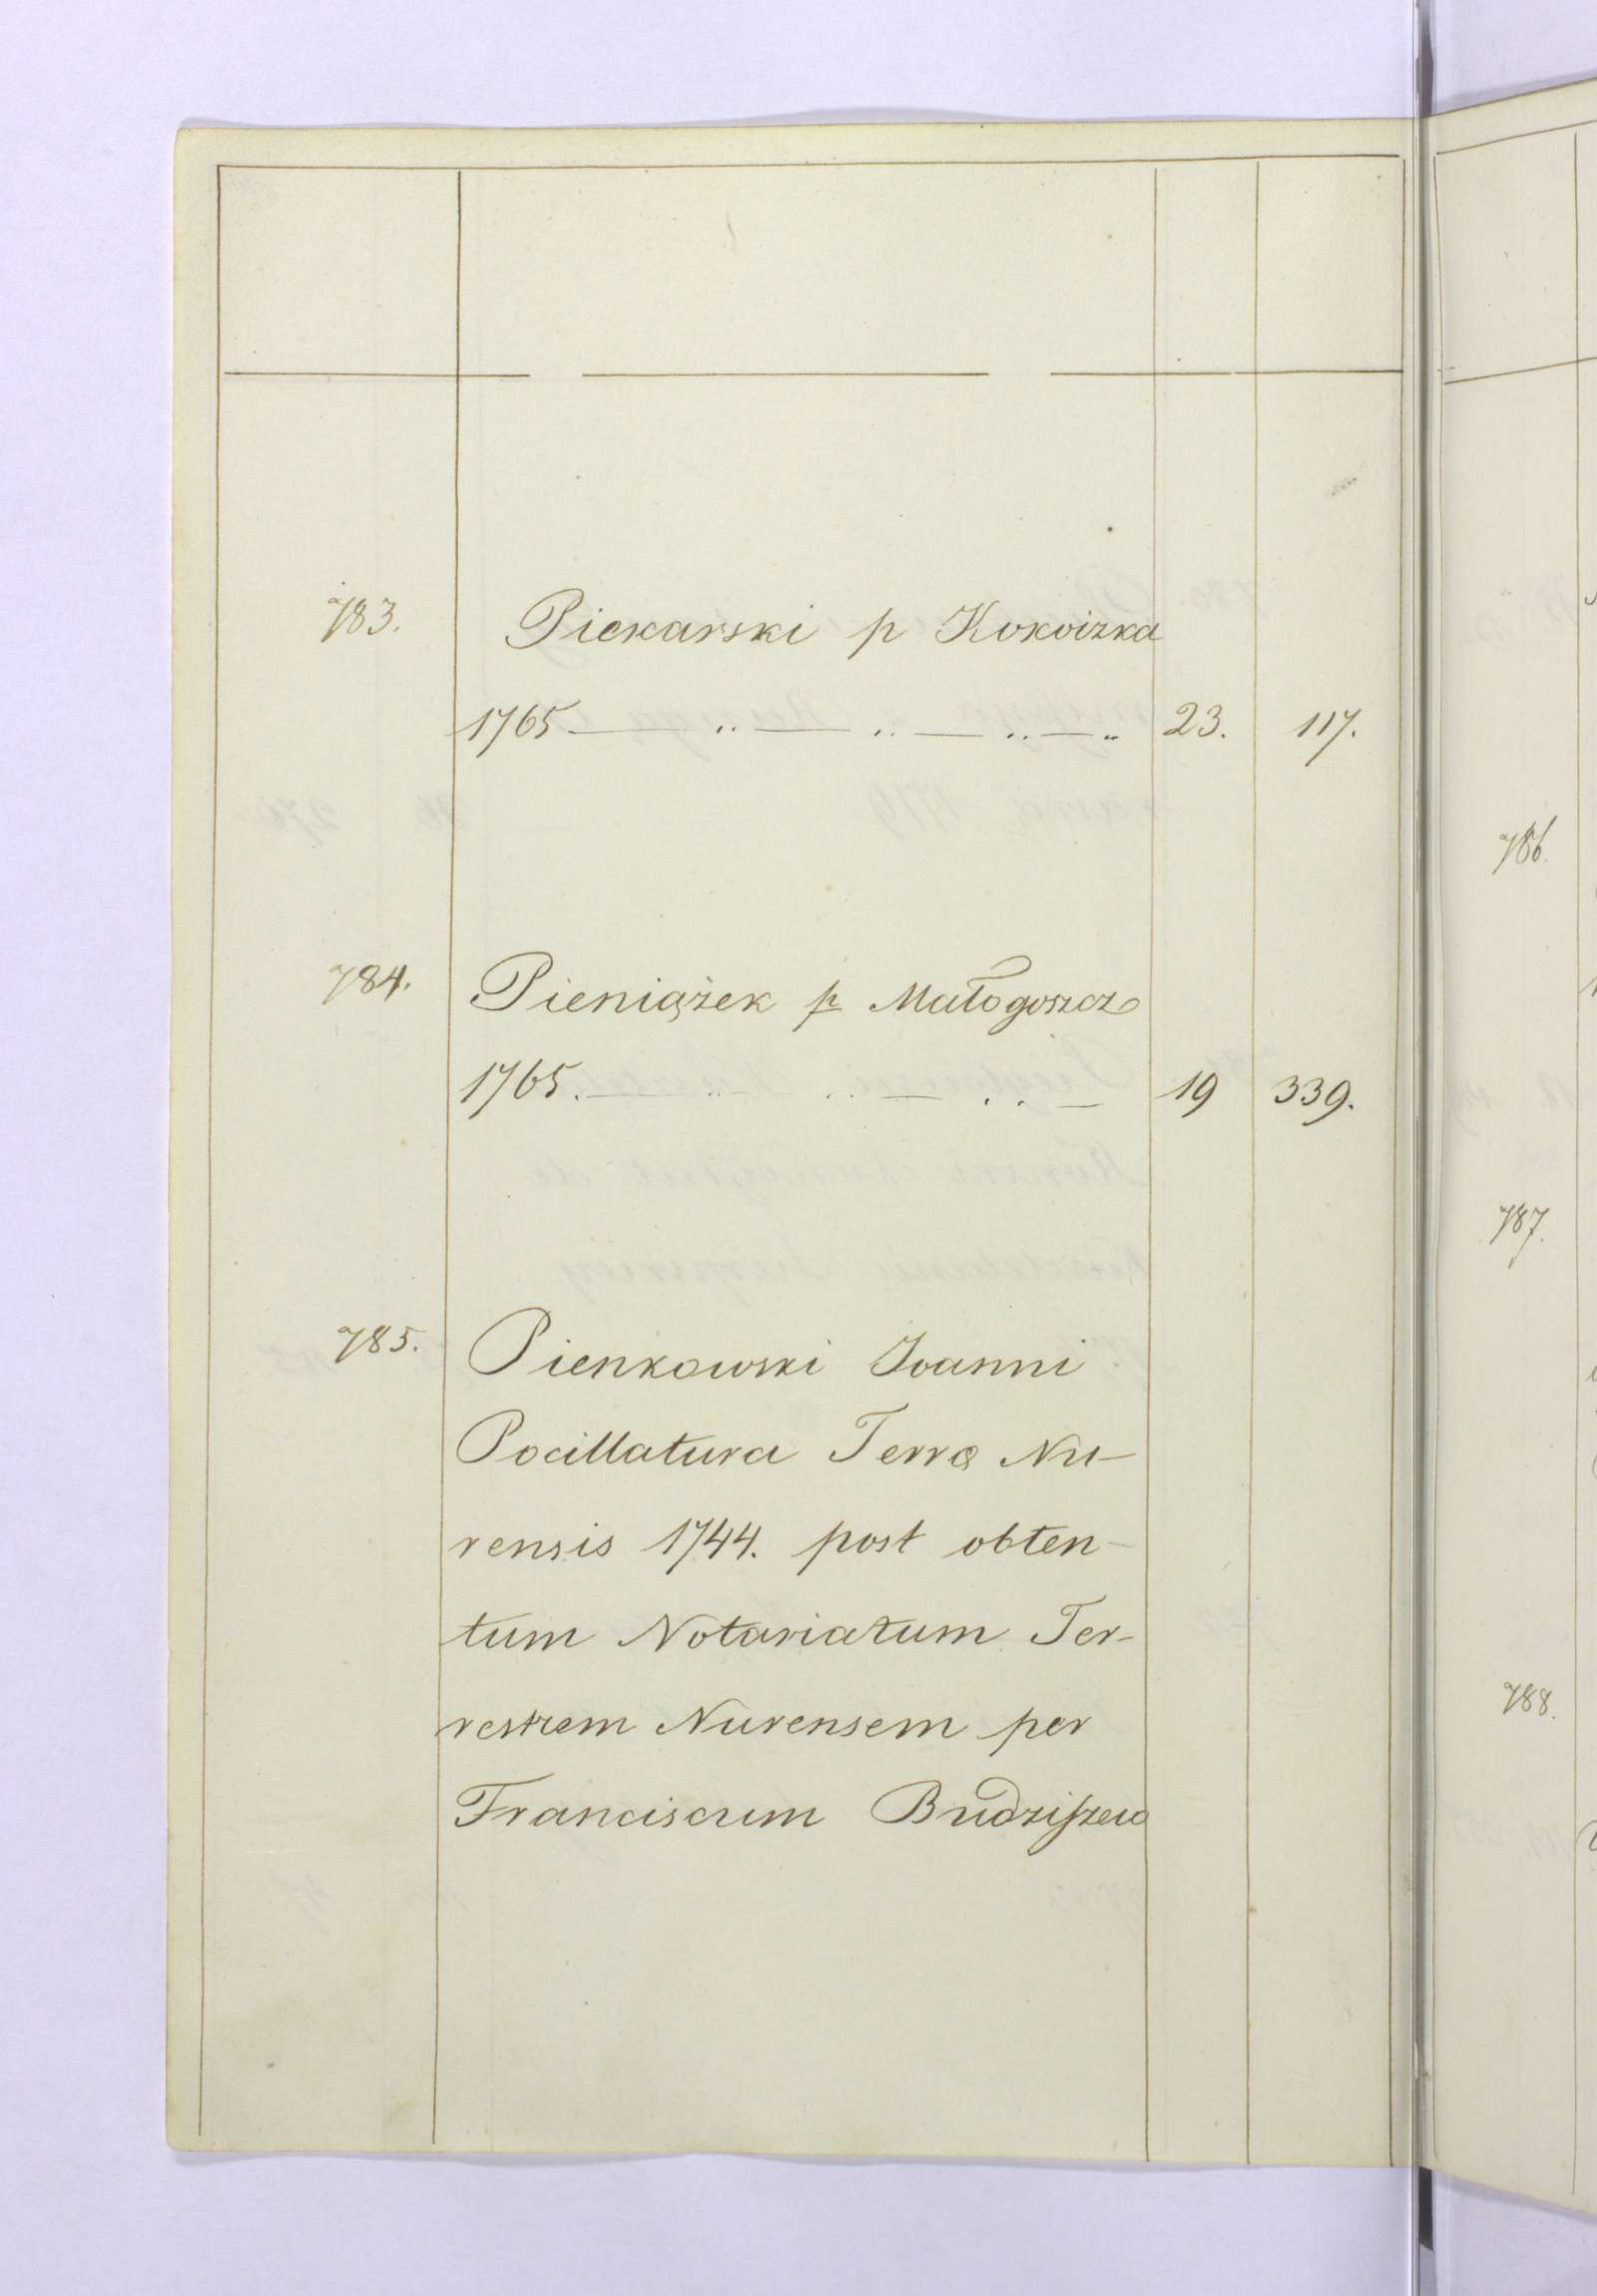 783. Piekarski p Kokoizka
1765 — .. — .. — .. — .. 23. 117.
784. Pieniążek p Małogoszcz
1765. — .. — .. — .. — 19 339.
785. Pienkowski Joanni
Pocillatura Terræ Nu-
rensis 1744. post obten-
tum Notariatum Ter-
restrem Nurensem per
Franciscum Budziszew
786.
787.
788.